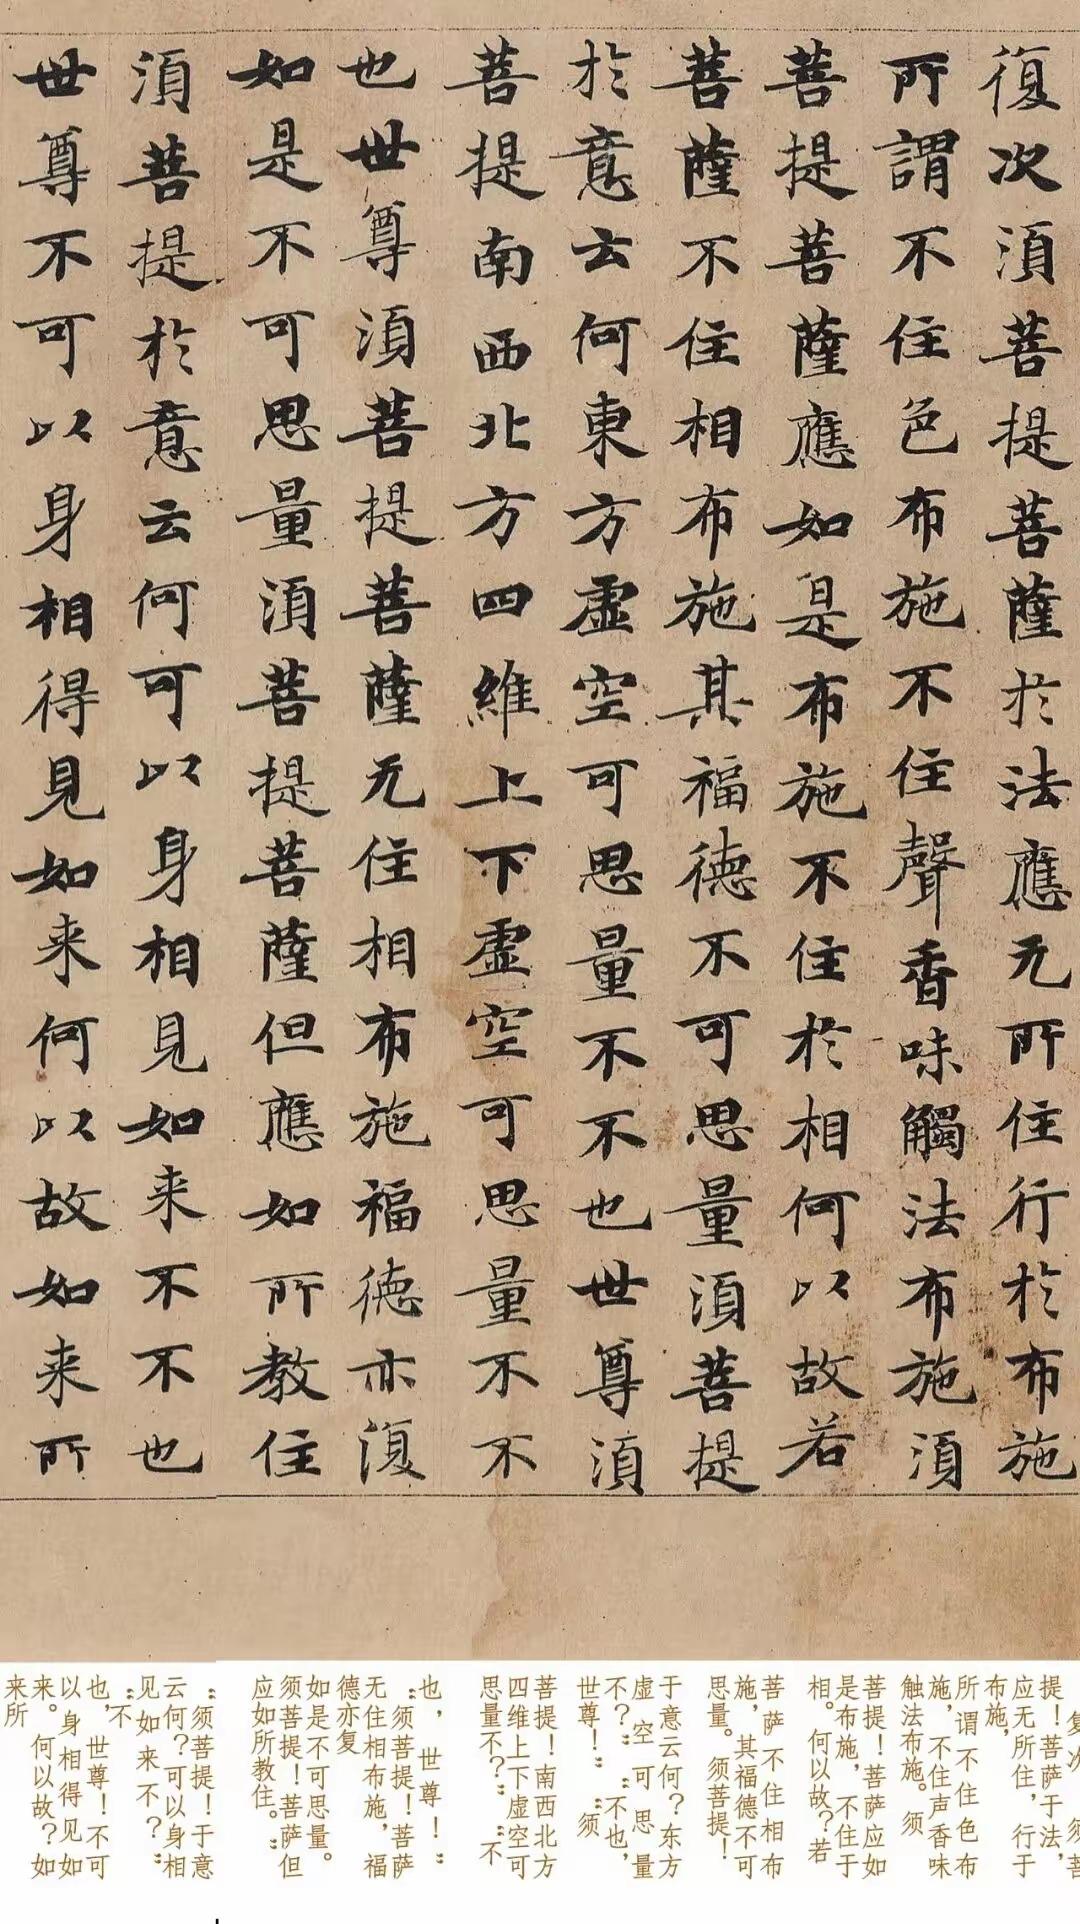 復次湏菩提菩薩於法應无所住行於布施
所謂不住色布施不住聲香味觸法布施湏
菩提菩薩應如是布施不住於相何以故若
菩薩不住相布施其福德不可思量湏菩提
於意云何東方虛空可思量不不也世尊湏
菩提南西北方四維上下虛空可思量不不
也世尊湏菩提菩薩无住相布施福德亦復
如是不可思量湏菩提菩薩但應如所教住
湏菩提於意云何可以身相見如来不不也
世尊不可以身相得見如来何以故如来所
复次 须菩
提！菩萨于法，
应无所住，行于
布施，
所谓不住色布
施，不住声香味
触法布施。须
菩提！菩萨应如
是布施，不住于
相。何以故？若
菩萨不住相布
施，其福德不可
思量。须菩提！
于意云何？东方
虚空可思量
不？”“不也，
世尊！”“须
菩提！南西北方
四维上下虚空可
思量不？”“不
也，世尊！”
“须菩提！菩萨
无住相布施，福
德亦复
如是不可思量。
须菩提！菩萨但
应如所教住。”
“须菩提！于意
云何？可以身相
见如来不？”
“不
也，世尊！不可
以身相得见如
来。何以故？如
来所